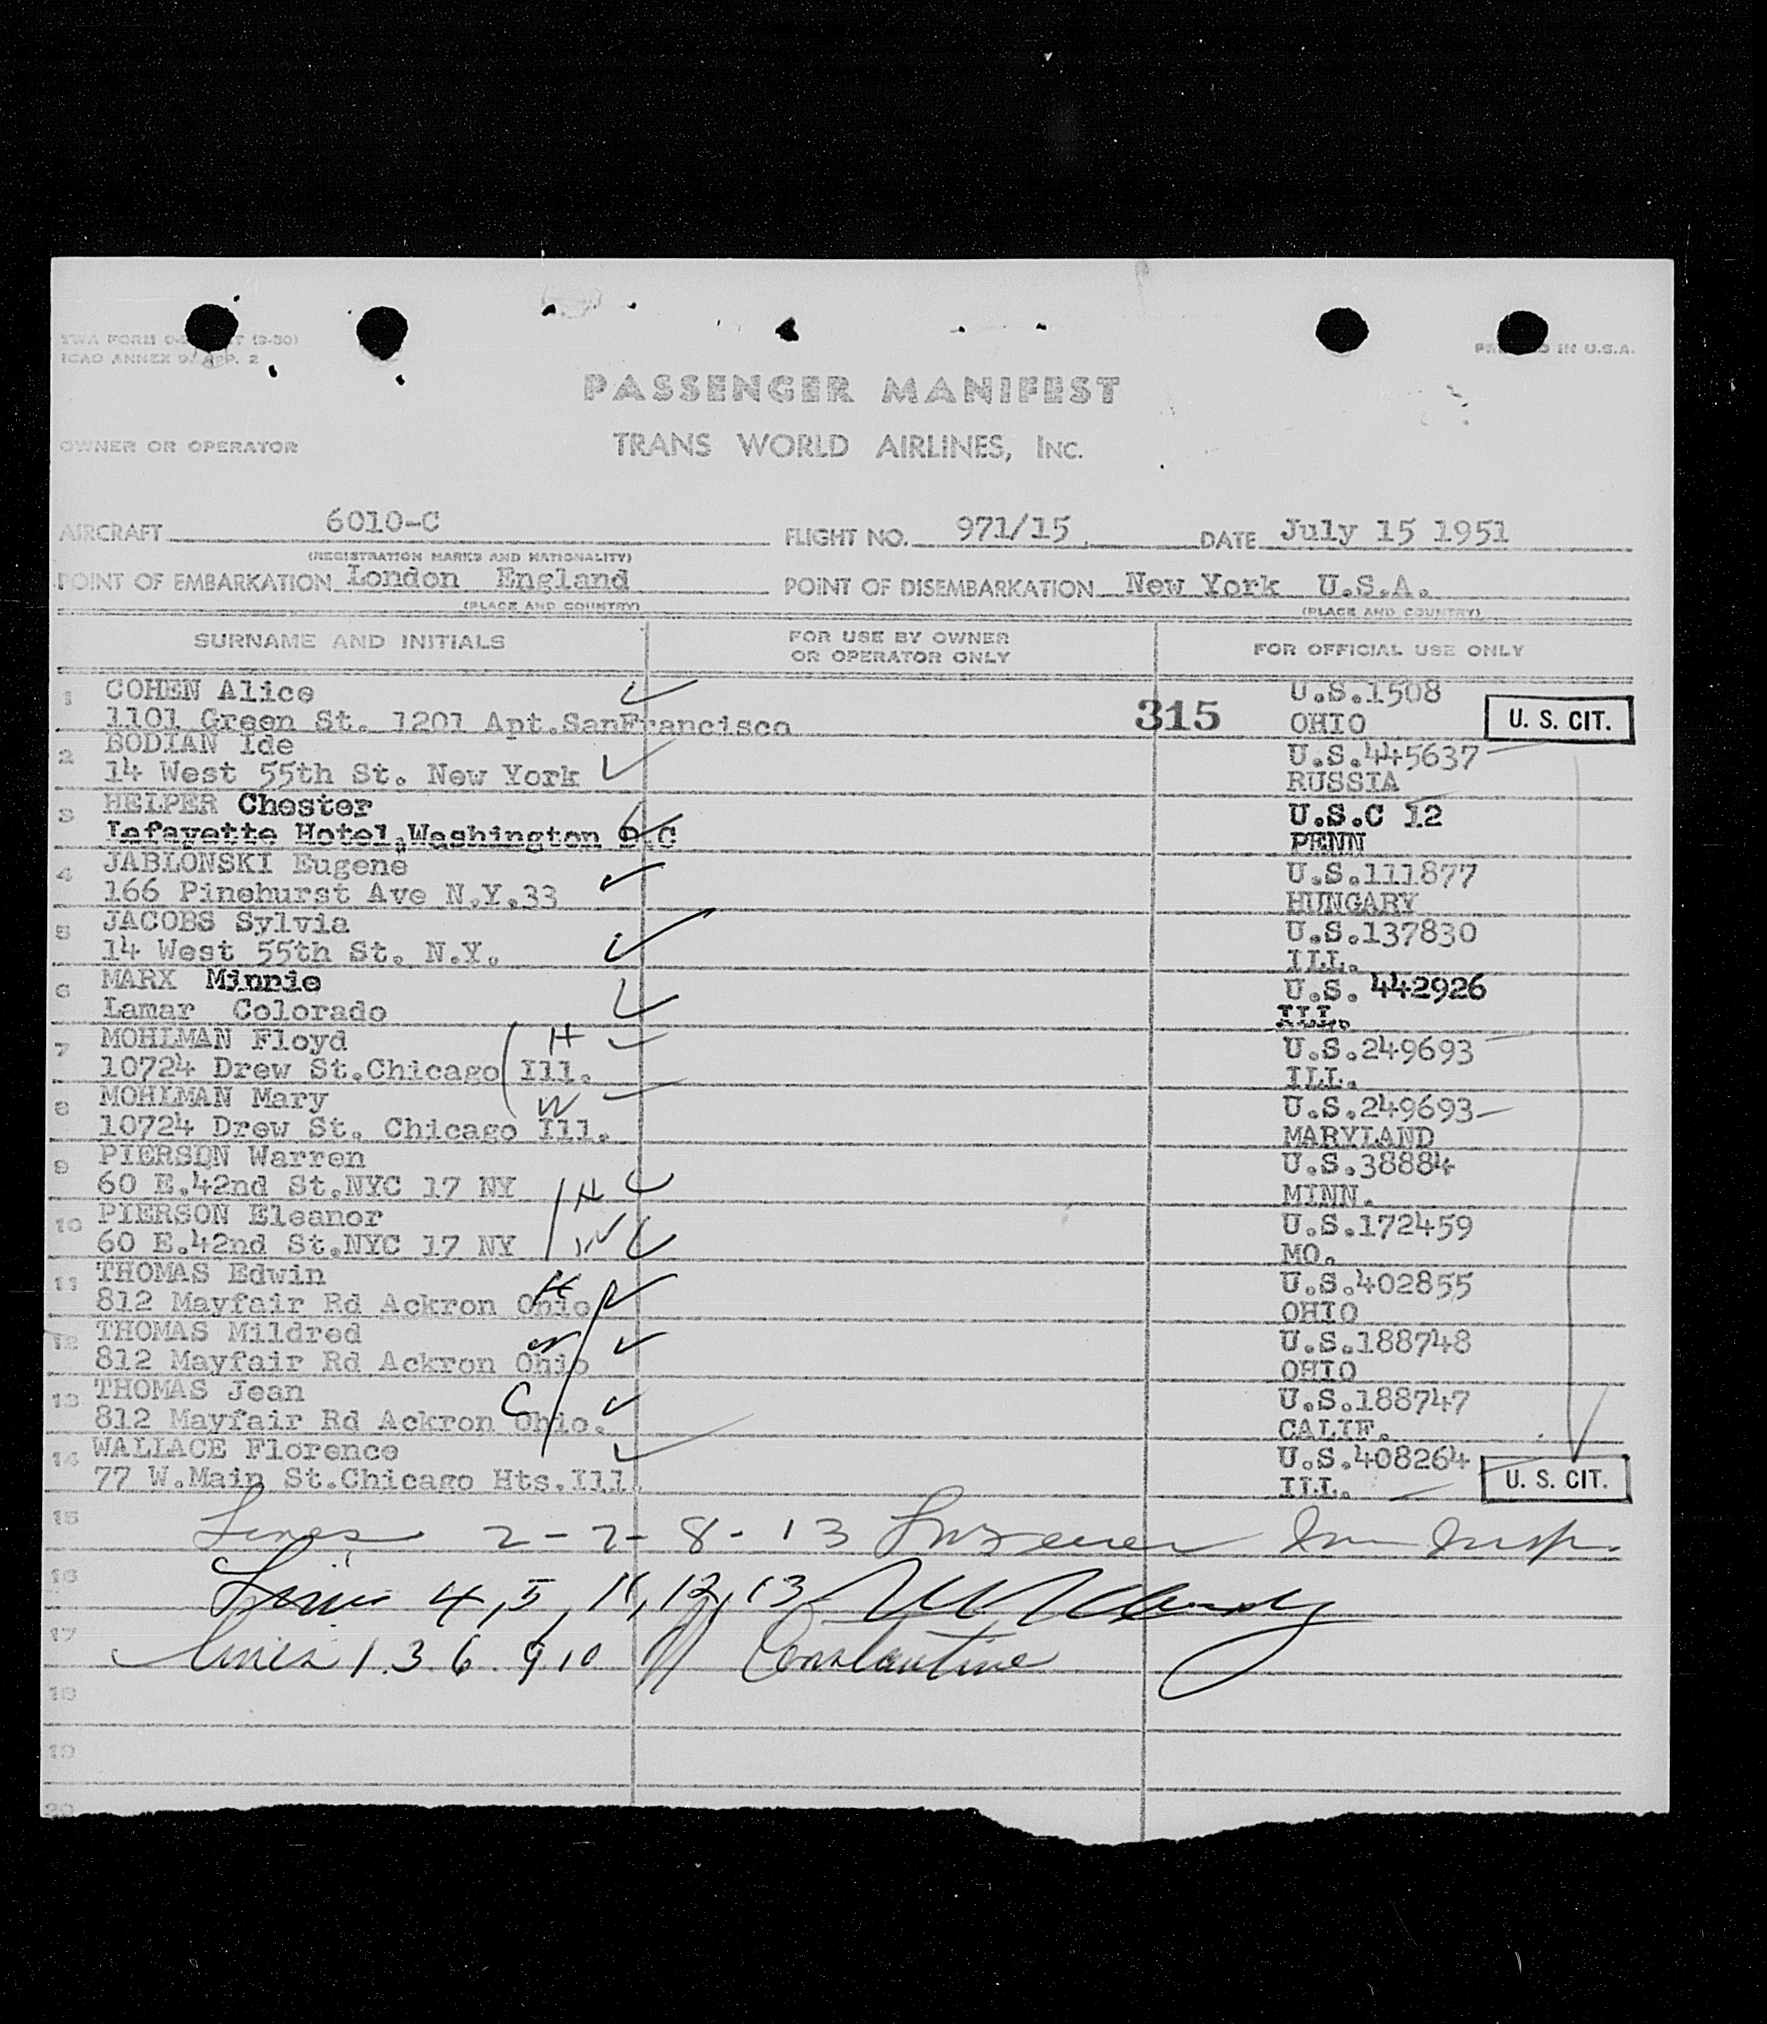 ICAO ANNEX 9, APP. 2
IN U.S.A.
PASSENGER MANIFEST
OWNER OR OPERATOR
TRANS WORLD AIRLINES, INC.
AIRCRAFT 6010-C FLIGHT NO. 971/15 DATE July 15 1951
(REGISTRATION MARKS AND NATIONALITY)
POINT OF EMBARKATION London England POINT OF DISEMBARKATION New York U.S.A.
(PLACE AND COUNTRY) (PLACE AND COUNTRY)
SURNAME AND INITIALS FOR USE BY OWNER OR OPERATOR ONLY FOR OFFICIAL USE ONLY
1 COHEN Alice U.S.1508
1101 Green St. 1201 Apt.SanFrancisco 315 OHIO U. S. CIT.
2 BODIAN Ide U.S.445637
14 West 55th St. New York RUSSIA
3 HELPER Chester U.S.C 12
Lafayette Hotel,Washington D.C PENN
4 JABLONSKI Eugene U.S.111877
166 Pinehurst Ave N.Y.33 HUNGARY
5 JACOBS Sylvia U.S.137830
14 West 55th St. N.Y. ILL.
6 MARX Minnie U.S. 442926
Lamar Colorado ILL.
7 MOHLMAN Floyd H U.S.249693
10724 Drew St.Chicago Ill. ILL.
8 MOHLMAN Mary W U.S.249693
10724 Drew St. Chicago Ill. MARYLAND
9 PIERSON Warren U.S.38884
60 E.42nd St.NYC 17 NY H MINN.
10 PIERSON Eleanor U.S.172459
60 E.42nd St.NYC 17 NY W MO.
11 THOMAS Edwin H U.S.402855
812 Mayfair Rd Ackron Ohio OHIO
12 THOMAS Mildred W U.S.188748
812 Mayfair Rd Ackron Ohio OHIO
13 THOMAS Jean C U.S.188747
812 Mayfair Rd Ackron Ohio. CALIF.
14 WALLACE Florence U.S.408264
77 W.Main St.Chicago Hts.Ill. ILL. U. S. CIT.
15 Lines 2-7-8-13 Imm Insp.
16 Lines 4,5,11,12,13
17 Lines 1.3.6.9.10 Constantine
18
19
20